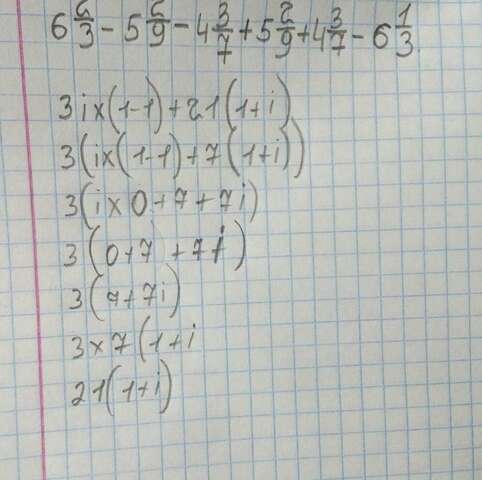 6 2/3 - 5 2/9 - 4 3/7 + 5 2/9 + 4 3/7 - 6 1/3
3ix(1-1)+21(1+i)
3(ix(1-1)+7(1+i))
3(ix0+7+7i)
3(0+7)+7i)
3(7+7i)
3x7(1+i
21(1+i)